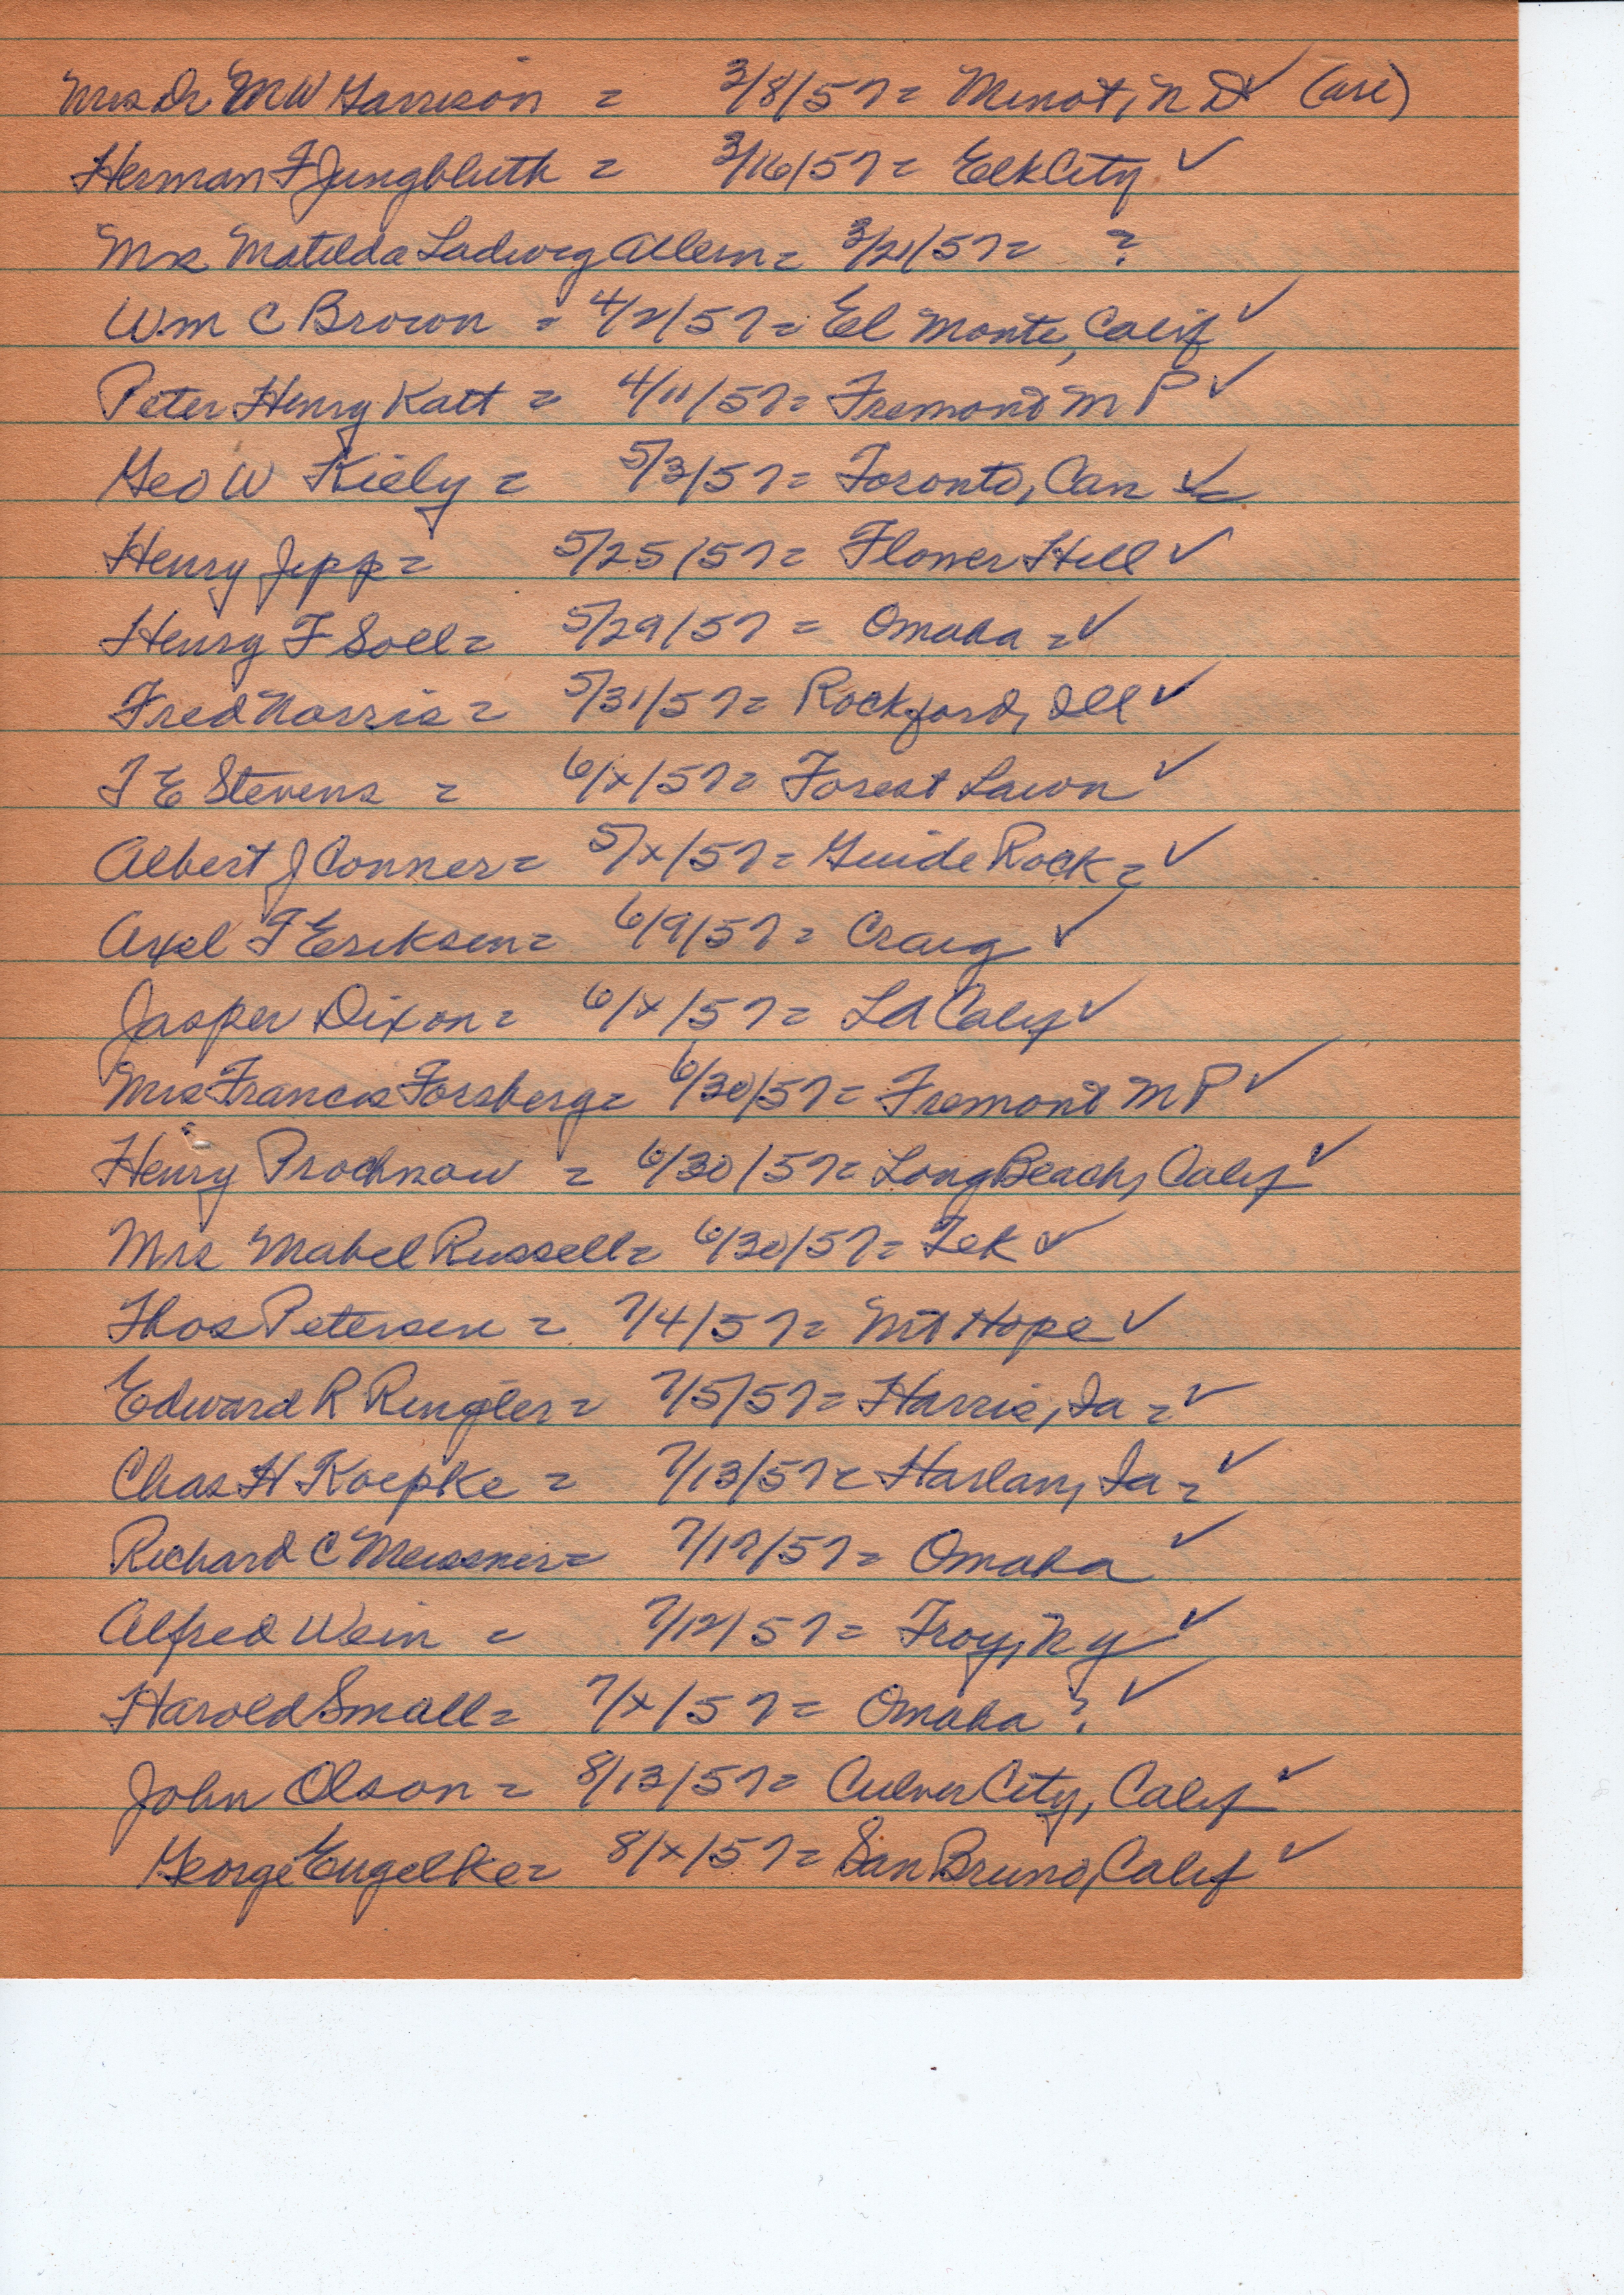 Mrs Dr M W Garrison = 3/8/57 = Minot, N D ✓
Herman F Jungbluth = 3/16/57 = Elk City ✓
Mrs Matilda Ladwig Allem = 3/21/57 = ?
Wm C Brown = 4/2/57 = El Monte, Calif ✓
Peter Henry Katt = 4/11/57 = Fremont M P ✓
Geo W Kiely = 5/3/57 = Toronto, Can ✓
Henry Jipp = 5/25/57 = Flower Hill ✓
Henry F Soll = 5/29/57 = Omaha = ✓
Fred Norris = 5/31/57 = Rockford, Ill ✓
T E Stevens = 6/x/57 = Forest Lawn ✓
Albert J Conner = 5/x/57 = Guide Rock = ✓
Axel F Eriksen = 6/9/57 = Craig ✓
Jasper Dixon = 6/x/57 = LA Calif ✓
Mrs Francis Forsberg = 6/30/57 = Fremont M P ✓
Henry Prochnow = 6/30/57 = Long Beach, Calif ✓
Mrs Mabel Russell = 6/30/57 = Tek ✓
Thos Petersen = 7/4/57 = Mt Hope ✓
Edward R Ringler = 7/5/57 = Harris, Ia = ✓
Chas H Koepke = 7/13/57 = Harlan, Ia = ✓
Richard C Meissner = 7/17/57 = Omaha ✓
Alfred Wein = 7/12/57 = Troy, N Y ✓
Harold Small = 7/x/57 = Omaha ? ✓
John Olson = 8/13/57 = Culver City, Calif ✓
George Engelke = 8/x/57 = San Bruno, Calif ✓